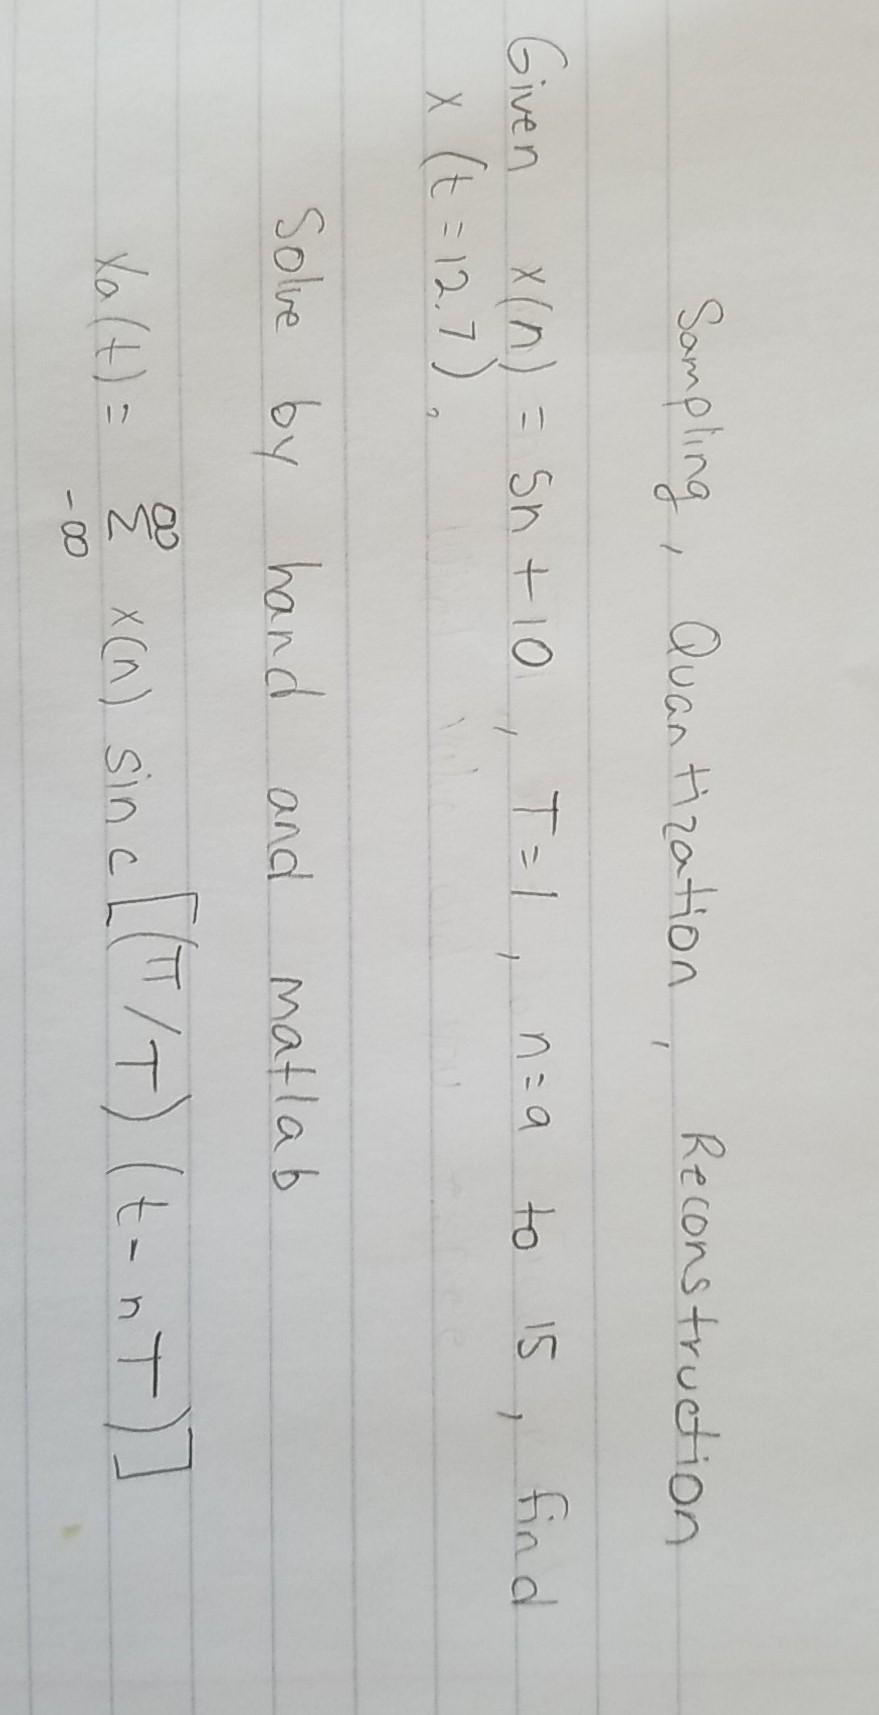 Sampling, Quantization, Reconstruction
Given x(n) = 5n + 10, T=1, n=9 to 15, find
x (t=12.7).
Solve by hand and matlab
Xa(t) = ∞ Σ x(n) sinc [(π/T) (t - nT)]
-∞